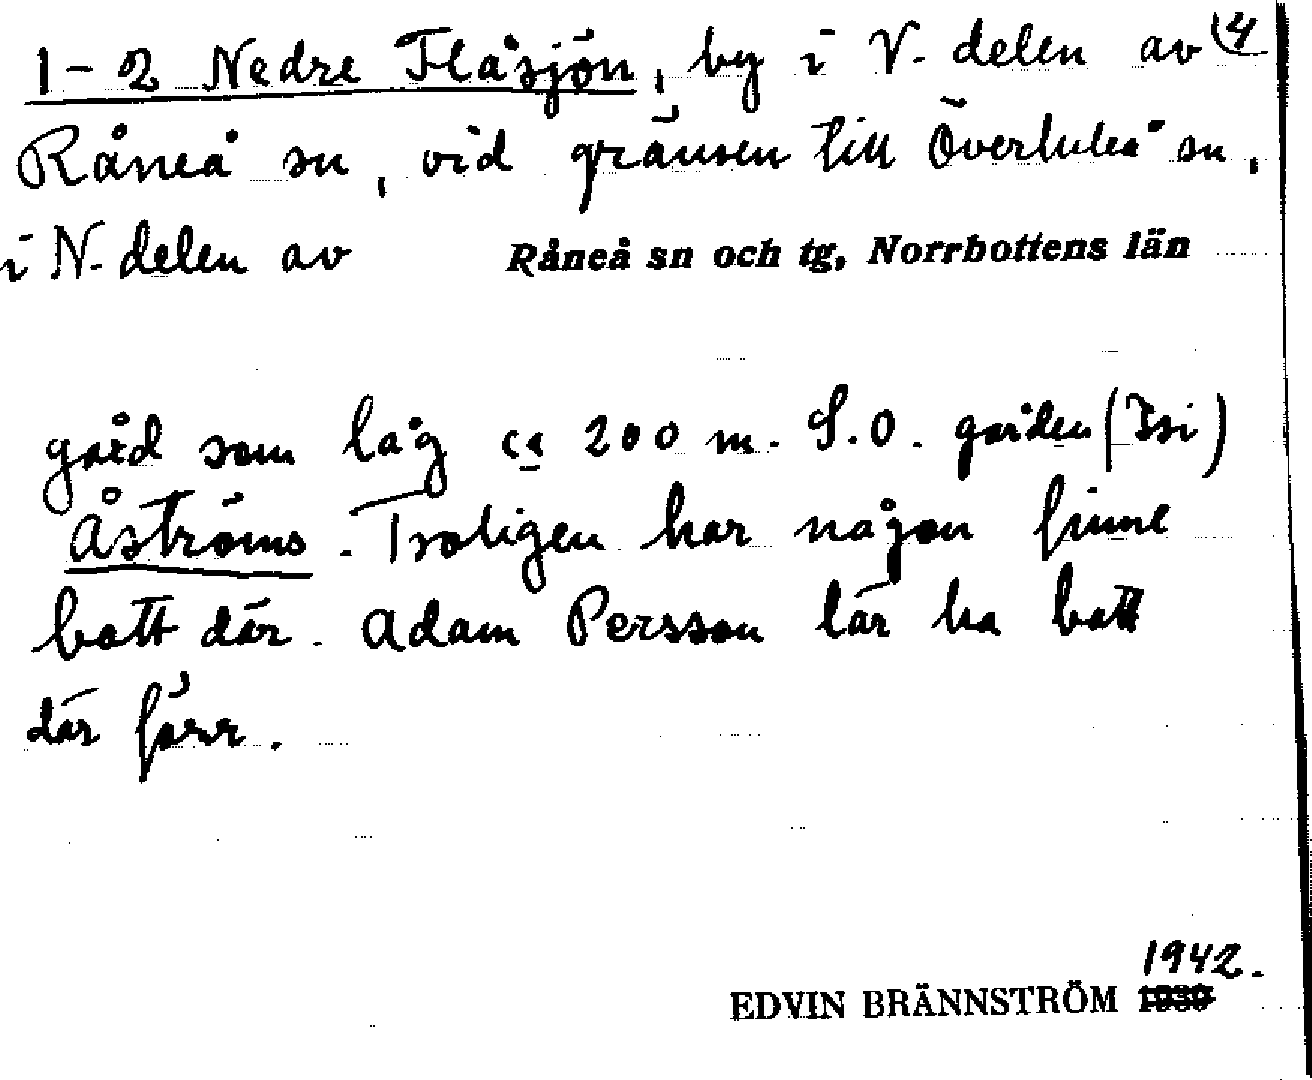 1-2 Nedre Flåsjön, by i V. delen av (4
Råneå sn, vid gränsen till Överluleå sn,
i N. delen av Råneå sn och tg, Norrbottens län
gård som låg ca 200 m. S.O. gården (Isi)
Åströms. Troligen har någon finne
bott där. Adam Persson lär ha bott
där förr.
1942.
EDVIN BRÄNNSTRÖM 1939